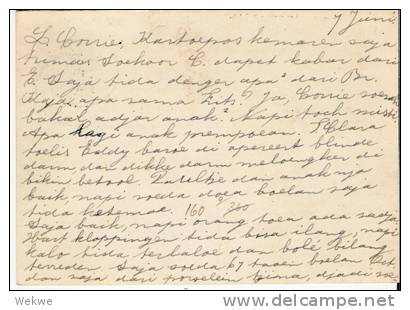 7 Juni
L. Corrie, Kartoepos kemaren saja
trimas Soekoer C. dapet kabar dari
E. Saja tida denger apa² dari Br.
Kajai apa sama Lits? Ja, Corrie soesah
bakal adjar anak². Tapi toch misti
Apa lagi anak prempoean. T Clara
toelis Eddy baroe di opereert blinde
darm dan dikke darm meloengker di
bikin betoel. Zusseltje dan anak nja
baik, napi soeda doea boelan saja
tida ketemoe. 160 / 200
Saja baik, napi orang toea ada sadja
Hart kloppingen tida bisa ilang, napi
kalo tida terlaloe dan bolé bilang
tevreden. Saja soeda 67 taoen boelan Oct
dan saja dari porselein tjina, djadi soe
Wekwe
http://www.delcampe.net